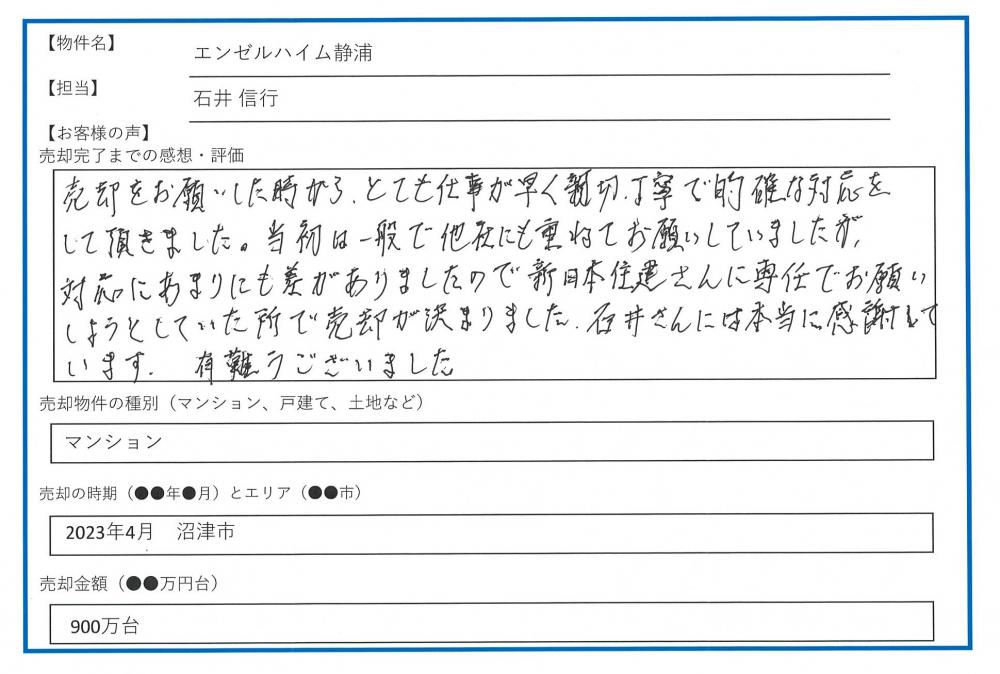 【物件名】 エンゼルハイム静浦
【担当】 石井 信行
【お客様の声】
売却完了までの感想・評価
売却をお願いした時から、とても仕事が早く親切、丁寧で的確な対応を
して頂きました。当初は一般で他社にも重ねてお願いしていましたが、
対応にあまりにも差がありましたので新日本住建さんに専任でお願い
しようとしていた所で売却が決まりました。石井さんには本当に感謝して
います。 有難うございました
売却物件の種別（マンション、戸建て、土地など）
マンション
売却の時期（●●年●月）とエリア（●●市）
2023年4月 沼津市
売却金額（●●万円台）
900万台